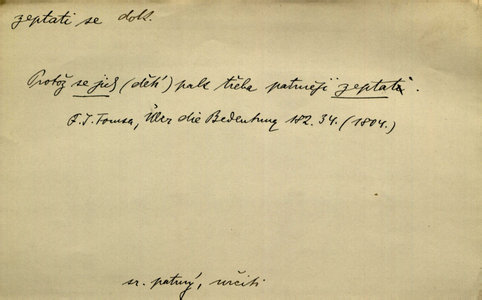 zeptati se dok.
Protož se jich (dětí) pak třeba patrněji zeptati.
F. J. Tomsa, Über die Bedeutung 182. 34. (1804.)
sr. patrný, určiti